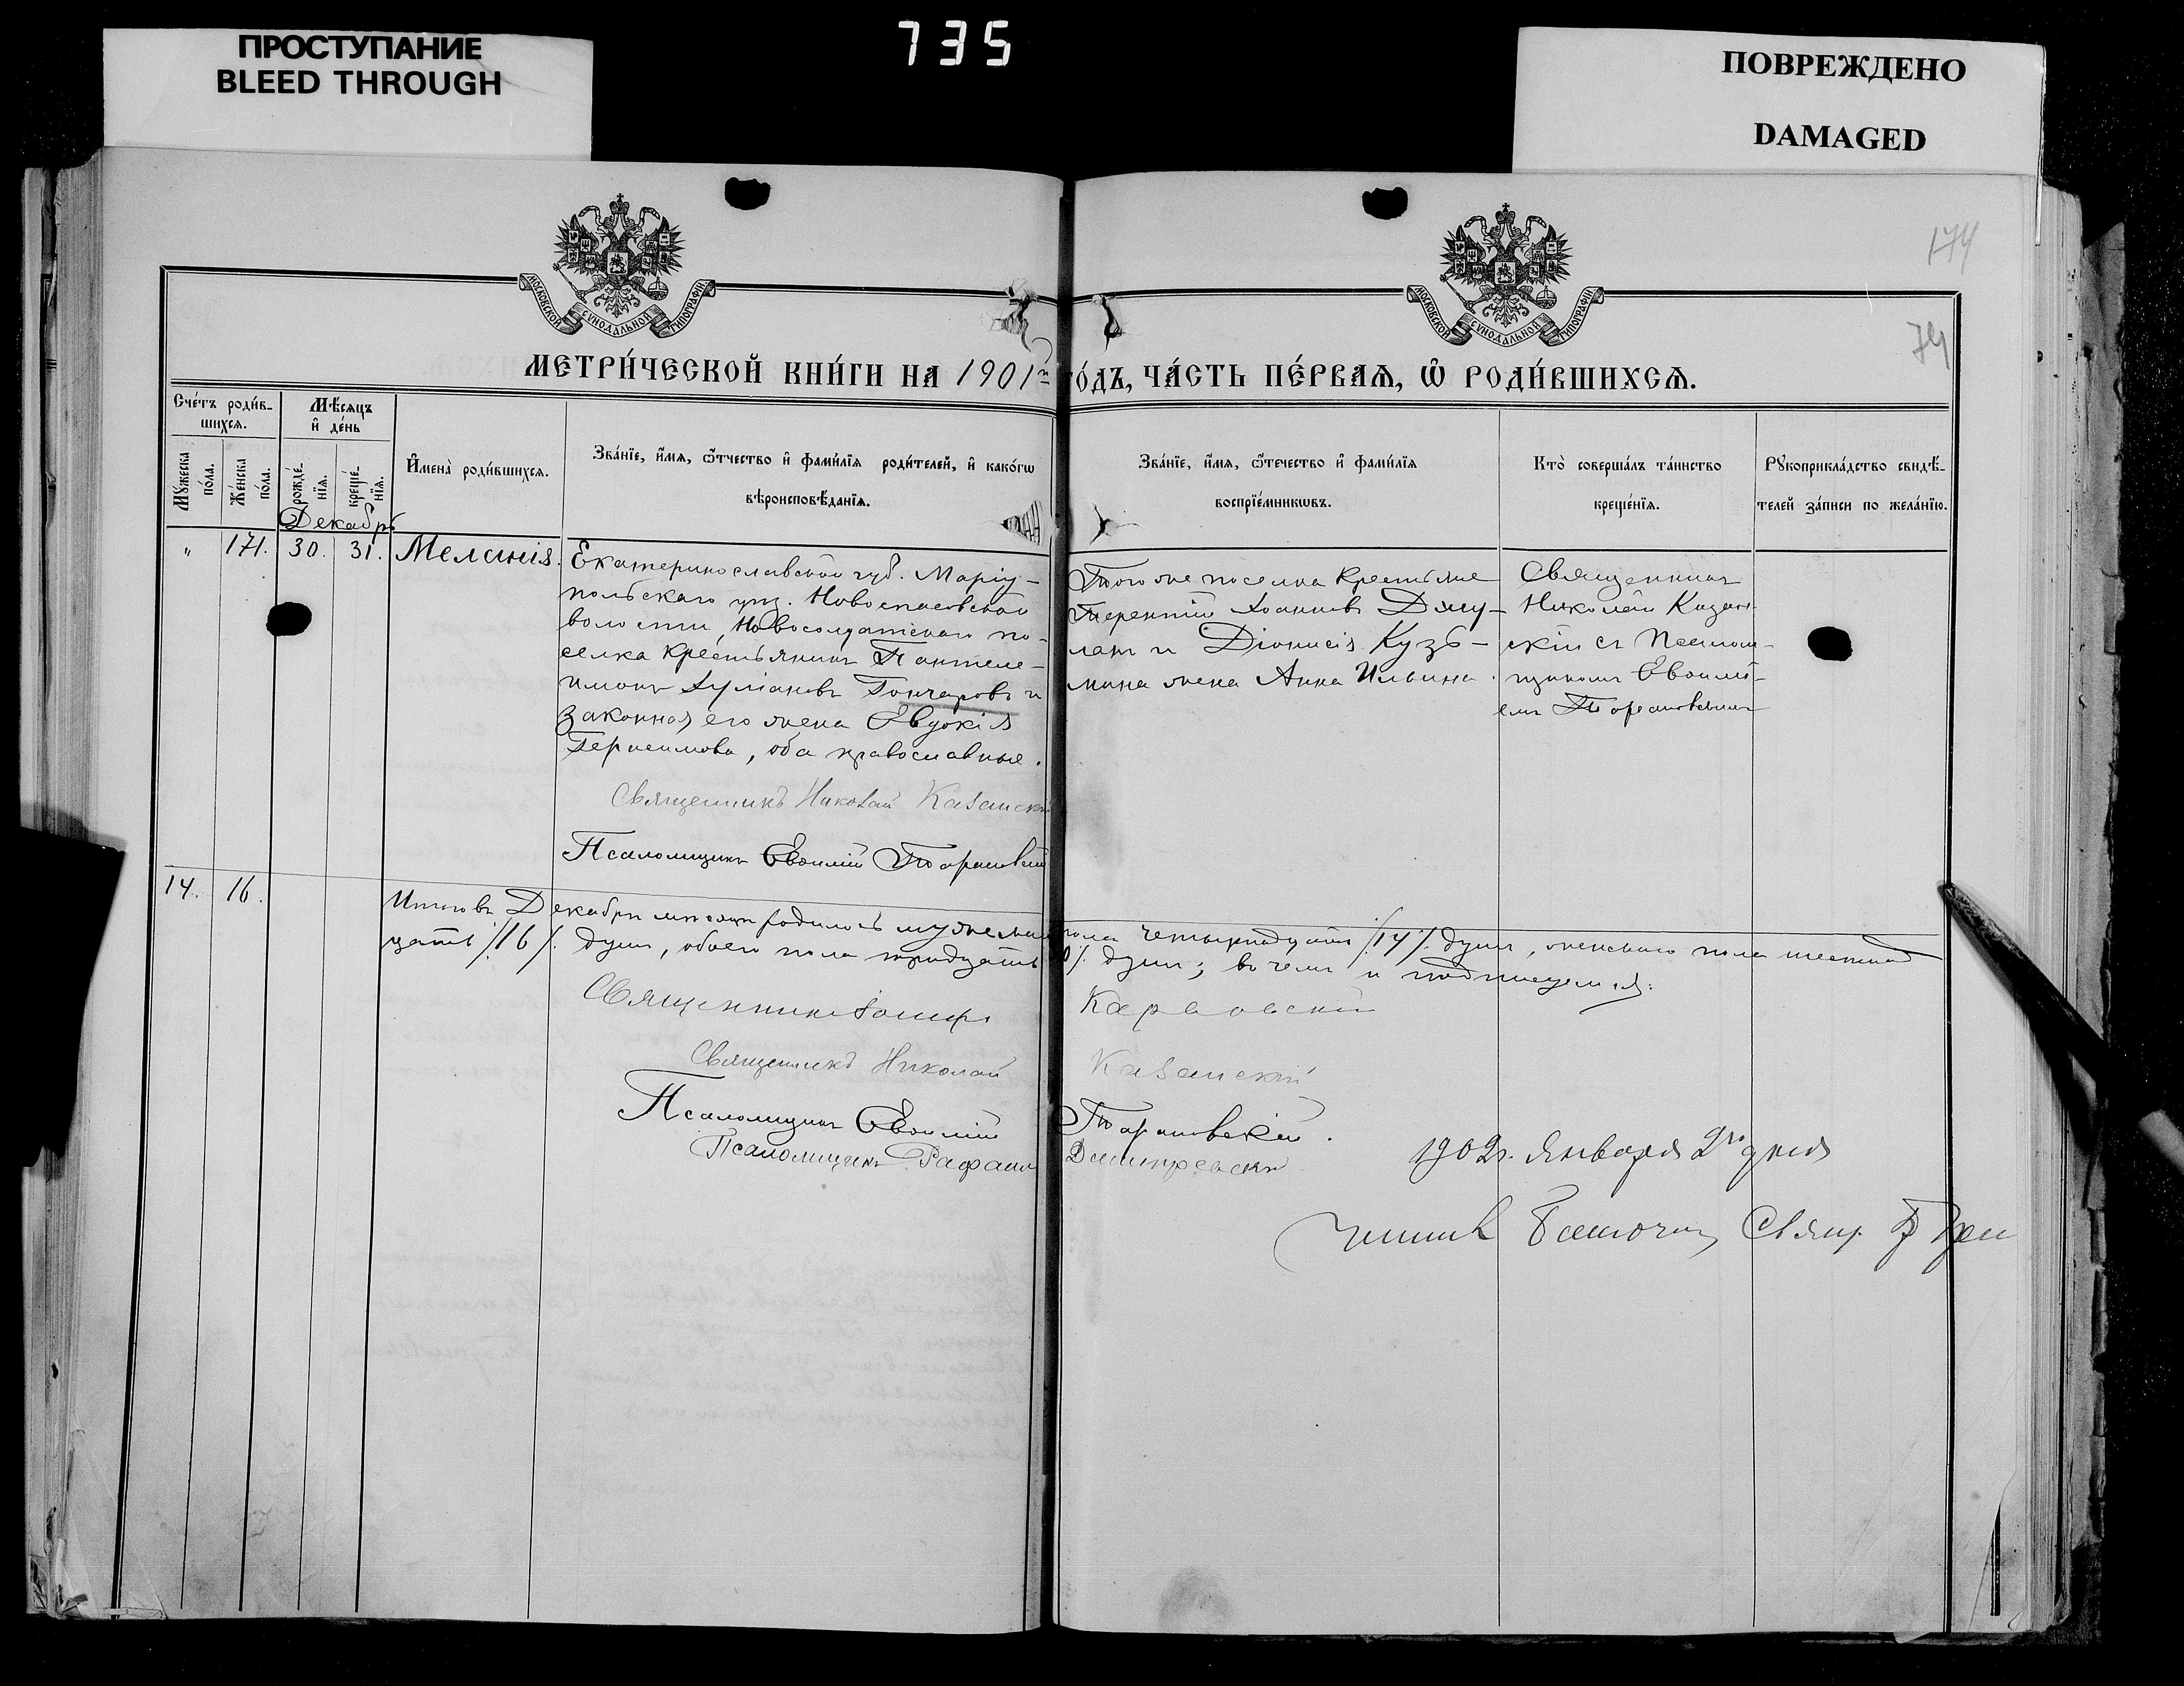 ПРОСТУПАНИЕ
BLEED THROUGH
735
ПОВРЕЖДЕНО
DAMAGED
174
74
МОСКОВСКОЙ СѴНОДАЛЬНОЙ ТИПОГРАФІИ
МОСКОВСКОЙ СѴНОДАЛЬНОЙ ТИПОГРАФІИ
МЕТРИ́ЧЕСКОЙ КНИ́ГИ НА 1901й
ГО́ДЪ, ЧА́СТЬ ПЕ́РВАѦ, Ѡ҆ РОДИ́ВШИХСѦ.
Сче́тъ роди́в-
шихсѧ.
Мꙋжеска по́ла.
Же́нска по́ла.
Мѣ́сѧцъ
и҆ де́нь
рожде́-
нїѧ.
креще́-
нїѧ.
И҆мена̀ роди́вшихсѧ.
Зва́нїе, и҆́мѧ, ѻ҆́тчество и҆ фами́лїѧ роди́телей, и҆ како́гѡ
вѣроисповѣ́данїѧ.
Зва́нїе, и҆́мѧ, ѻ҆те́чество и҆ фами́лїѧ
воспрїе́мникѡвъ.
Кто̀ соверша́лъ та́инство
креще́нїѧ.
Рꙋкоприкла́дство свидѣ́-
телей за́писи по жела́нїю.
Декабрь
" 171. 30. 31. Меланія.
Екатеринославской губ. Маріу-
польскаго уѣз. Новоспасовской
волости, Новосолдатскаго по-
селка крестьянинъ Пантеле-
имонъ Гончаровъ и
законная его жена Евдокія
Герасимова, оба православные.
Священникъ Николай Казанскій
Псаломщикъ Евѳимій Тарановскій
Того же поселка крестьяне
Терентій Іоанновъ Джу-
ланъ и Діонисія Кузь-
мина жена Анна Ильина.
Священникъ
Николай Казан-
скій съ Псалом-
щикомъ Евѳимі-
емъ Тарановскимъ
14. 16.
Итого въ Декабрѣ мѣсяцѣ родилось мужескаго пола четырнадцать /14/ душъ, женскаго пола шестнад
цать /16/ душъ, обоего пола тридцать душъ; въ чемъ и подписуемся:
Священникъ Іосифъ Карповскій
Священникъ Николай Казанскій
Псаломщикъ Евѳимій Тарановскій.
Псаломщикъ Рафаилъ
1902 г. Января 2го дня
Читалъ Свящ.